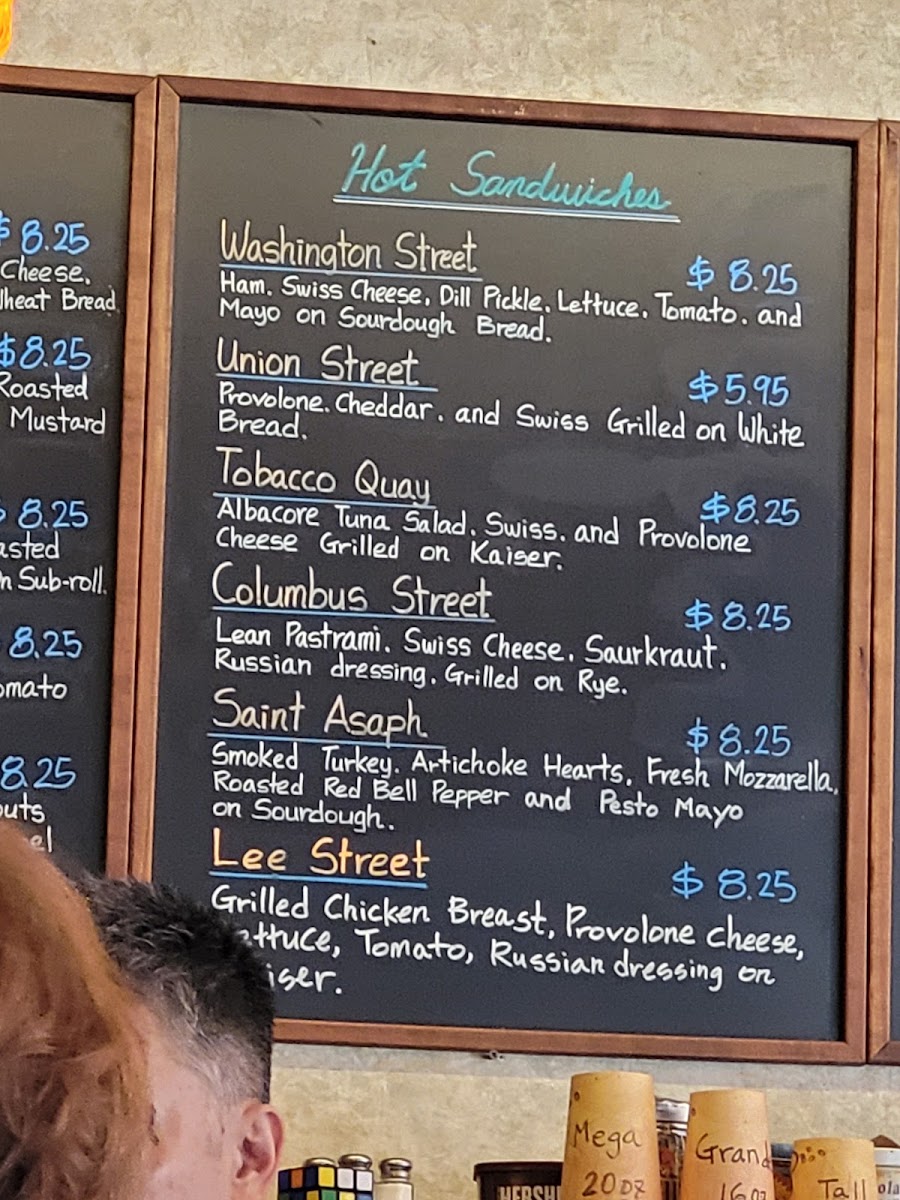 $ 8.25
Cheese.
Wheat Bread
$8.25
Roasted
Mustard
8.25
on Sub-roll.
8.25
8.25
Hot Sandwiches
Washington Street
$ 8.25
Ham. Swiss Cheese. Dill Pickle. Lettuce. Tomato. and
Mayo on Sourdough Bread.
Union Street
$5.95
Provolone. Cheddar. and Swiss Grilled on White
Bread.
Tobacco Quay
$8.25
Albacore Tuna Salad. Swiss. and Provolone
Cheese Grilled on Kaiser.
Columbus Street
$ 8.25
Lean Pastrami. Swiss Cheese. Saurkraut.
Russian dressing. Grilled on Rye.
Saint Asaph
$ 8.25
Smoked Turkey. Artichoke Hearts. Fresh Mozzarella.
Roasted Red Bell Pepper and Pesto Mayo
on Sourdough.
Lee Street
$ 8.25
Grilled Chicken Breast, Provolone cheese,
Lettuce, Tomato, Russian dressing on
Kaiser.
Mega
20oz
Grand
16oz
Tall
HERSHE